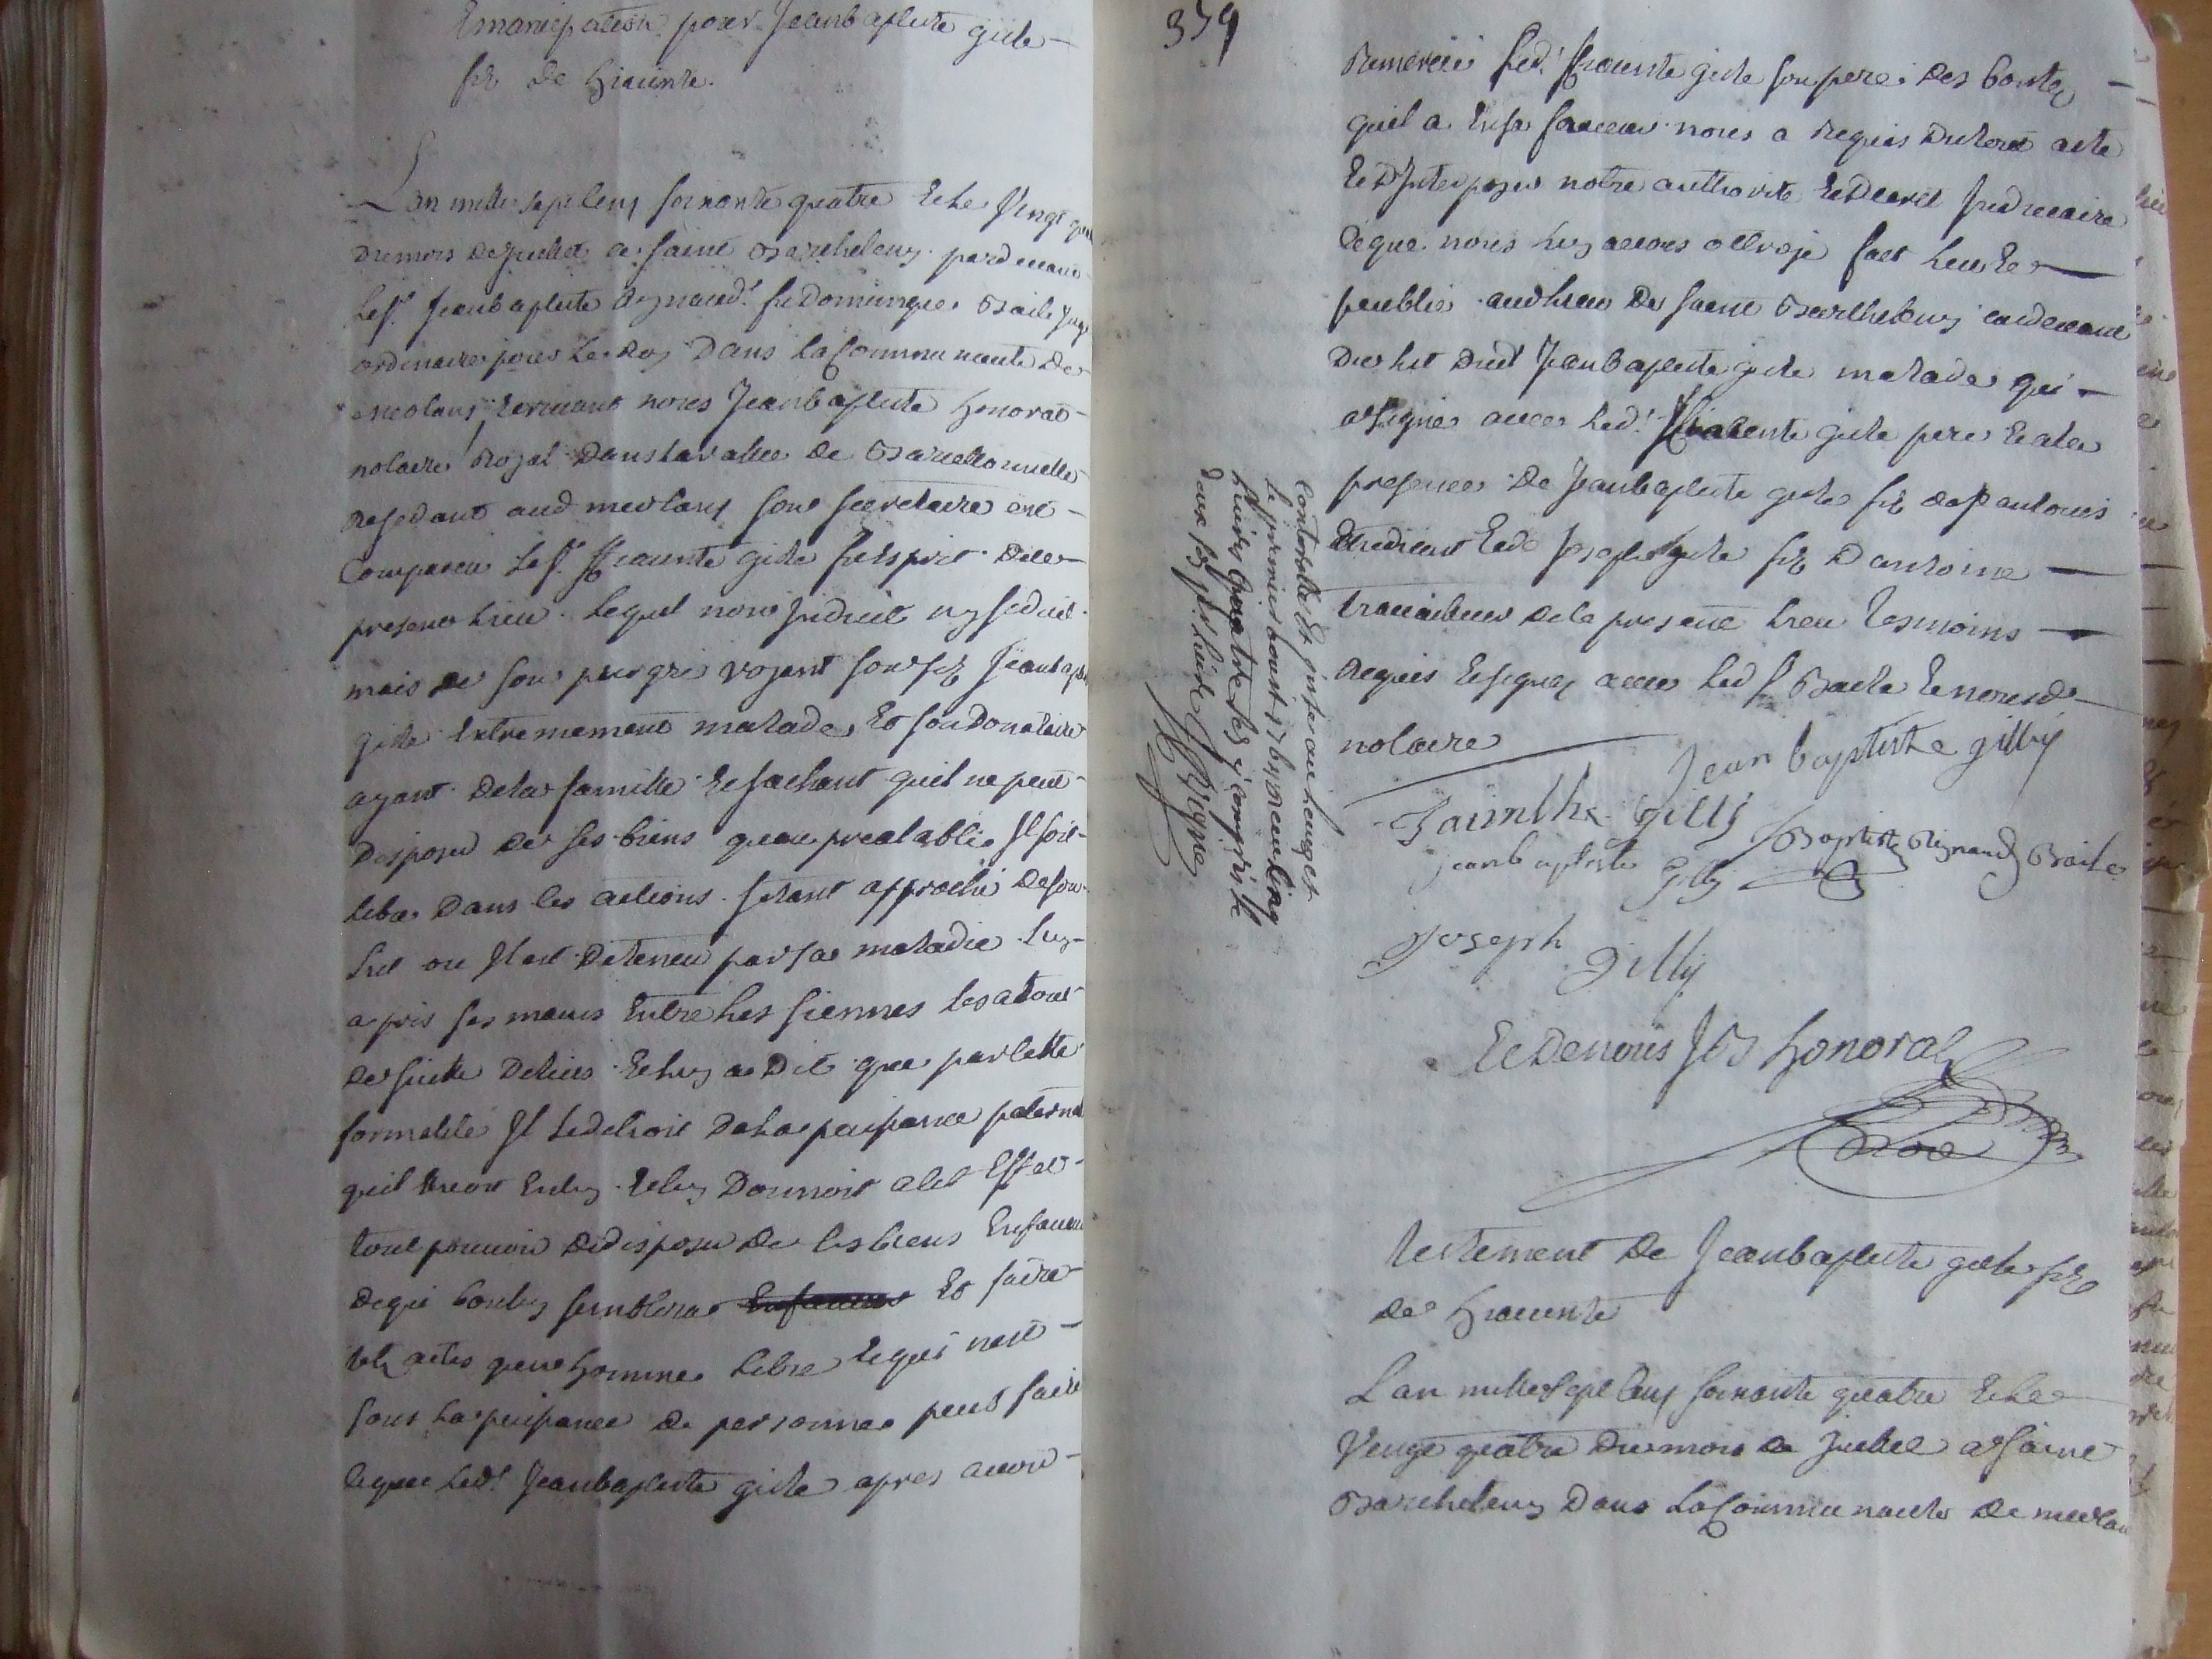 Emancipation pour Jeanbaptiste gille
fils de hiacinte.
Lan mille sept cens soixante quatre et le vingt
du mois de juillet a saint Barthelemy pardevant
le sr Jeanbaptiste Reynaud fu Dominique Baile juge
ordinaire pour le Roy dans la Communauté de
meolans ecrivant nous Jeanbaptiste honorat
notaire Royal dans la vallée de Barcellonnette
residant aud meolans son secretaire est
Comparu le sr hiacinte gille fu esprit de ce
present lieu lequel non induit ny seduit
mais de son pur gré voyant son fils Jeanbaptiste
gille extremement malade et son donataire
ayant de la famille et sachant quil ne peut
disposer de ses biens quau prealable il soit
libre dans les actions setant approché de son
lict ou il est detenu par sa maladie luy
a pris ses mains entre les siennes
de suitte et luy a dit que par cette
formalité il de la puissance paternel
quil avoit sur luy et luy donnoit a cet effet
tout pouvoir de disposer de ses biens en faveur
de qui bon luy semblera et faire
tels actes quun homme libre et qui nest
sous la puissance de personne peut faire
et que led Jeanbaptiste gille apres avoir
359
remercié led hiacinte gille son pere des bontes
quil a en sa faveur nous a requis du tout acte
et dinterposer notre authorité et decret judiciaire
ce que nous luy avons octroyé fait leu et
publié aud lieu de saint Barthelemy audevant
du lit dud Jeanbaptiste gille malade qui
a signé avec led hiacinte gille pere et a la
presence de Jeanbaptiste gille fils de
et de Joseph gille fils dantoine
travailleur de ce present lieu temoins
requis et signes avec led sr Baile et nousd
notaire
Jean baptiste gilly
Jaimthe gilly
Baptiste Reynaud Baile
jeanbaptiste gilly
Joseph gilly
Et de nous JB honorat
Controllé et insinué au lauzet
le premier aoust 1764 Receu cinq
livres quatre sols y compris le
deux sols pr livre
Testement de Jeanbaptiste gille fils
de hiacinte
Lan mille sept cens soixante quatre et le
vingt quatre du mois de juillet a saint
Barthelemy dans la Communauté de meolans